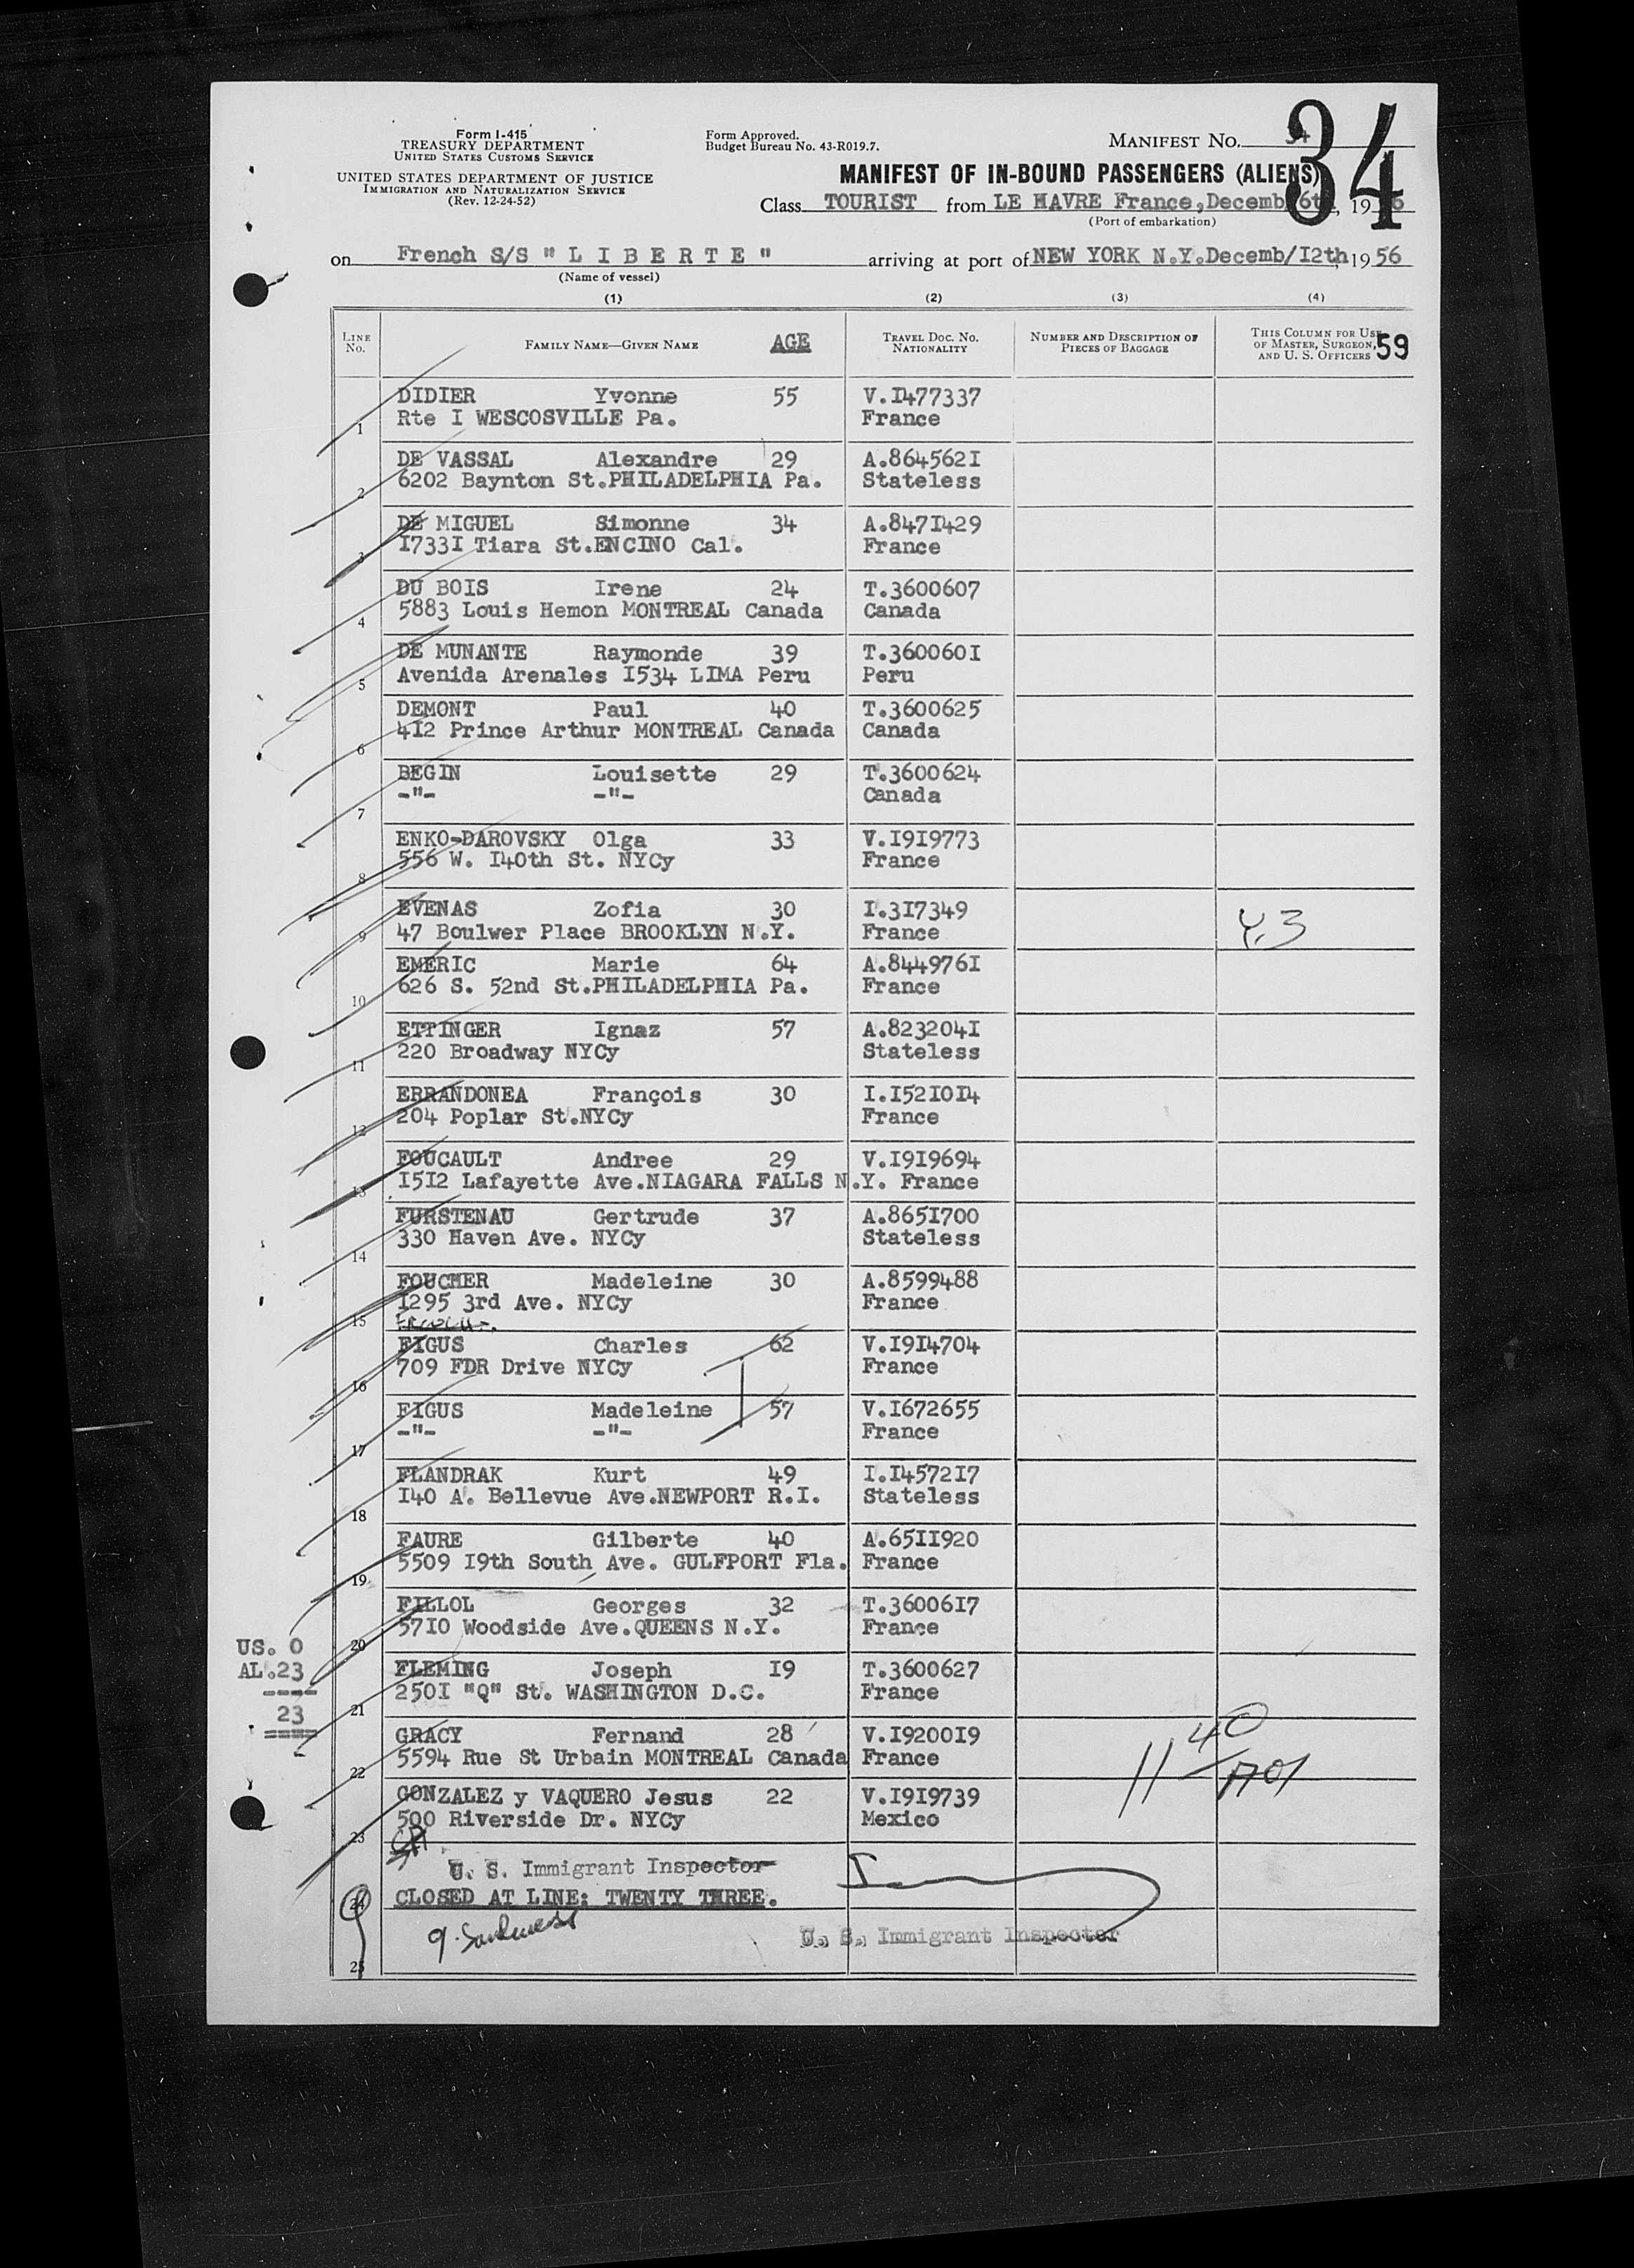 Form I-415
TREASURY DEPARTMENT
UNITED STATES CUSTOMS SERVICE
UNITED STATES DEPARTMENT OF JUSTICE
IMMIGRATION AND NATURALIZATION SERVICE
(Rev. 12-24-52)
Form Approved.
Budget Bureau No. 43-R019.7.
MANIFEST NO. 34
34
MANIFEST OF IN-BOUND PASSENGERS (ALIENS)
Class TOURIST from LE HAVRE France, Decemb 6th, 1956
(Port of embarkation)
on French S/S " L I B E R T E " arriving at port of NEW YORK N.Y. Decemb/I2th 1956
(Name of vessel)
(1) (2) (3) (4)
LINE No. FAMILY NAME—GIVEN NAME AGE TRAVEL DOC. NO. NATIONALITY NUMBER AND DESCRIPTION OF PIECES OF BAGGAGE THIS COLUMN FOR USE OF MASTER, SURGEON, AND U. S. OFFICERS 59
DIDIER Yvonne 55 V.I477337
1 Rte I WESCOSVILLE Pa. France
DE VASSAL Alexandre 29 A.864562I
2 6202 Baynton St.PHILADELPHIA Pa. Stateless
DE MIGUEL Simonne 34 A.847I429
3 I733I Tiara St.ENCINO Cal. France
DU BOIS Irene 24 T.3600607
4 5883 Louis Hemon MONTREAL Canada Canada
DE MUNANTE Raymonde 39 T.360060I
5 Avenida Arenales I534 LIMA Peru Peru
DEMONT Paul 40 T.3600625
6 4I2 Prince Arthur MONTREAL Canada Canada
BEGIN Louisette 29 T.3600624
7 -"- -"- Canada
ENKO-DAROVSKY Olga 33 V.I9I9773
8 556 W. I40th St. NYCy France
EVENAS Zofia 30 I.3I7349
9 47 Boulwer Place BROOKLYN N.Y. France Y.3
EMERIC Marie 64 A.844976I
10 626 S. 52nd St.PHILADELPHIA Pa. France
ETTINGER Ignaz 57 A.823204I
11 220 Broadway NYCy Stateless
ERRANDONEA François 30 I.I52I0I4
12 204 Poplar St.NYCy France
FOUCAULT Andree 29 V.I9I9694
13 I5I2 Lafayette Ave.NIAGARA FALLS N.Y. France
FURSTENAU Gertrude 37 A.865I700
14 330 Haven Ave. NYCy Stateless
FOUCHER Madeleine 30 A.8599488
15 I295 3rd Ave. NYCy France
FIGUS Charles 62 V.I9I4704
16 709 FDR Drive NYCy France
FIGUS Madeleine 57 V.I672655
17 -"- -"- France
FLANDRAK Kurt 49 I.I4572I7
18 I40 A. Bellevue Ave.NEWPORT R.I. Stateless
FAURE Gilberte 40 A.65II920
19 5509 I9th South Ave. GULFPORT Fla. France
FILLOL Georges 32 T.36006I7
20 57I0 Woodside Ave.QUEENS N.Y. France
US. 0
AL.23
----
23
====
FLEMING Joseph I9 T.3600627
21 250I "Q" St. WASHINGTON D.C. France
GRACY Fernand 28 V.I9200I9
22 5594 Rue St Urbain MONTREAL Canada France
GONZALEZ y VAQUERO Jesus 22 V.I9I9739
23 500 Riverside Dr. NYCy Mexico
U. S. Immigrant Inspector
24 CLOSED AT LINE: TWENTY THREE.
U. S. Immigrant Inspector
25